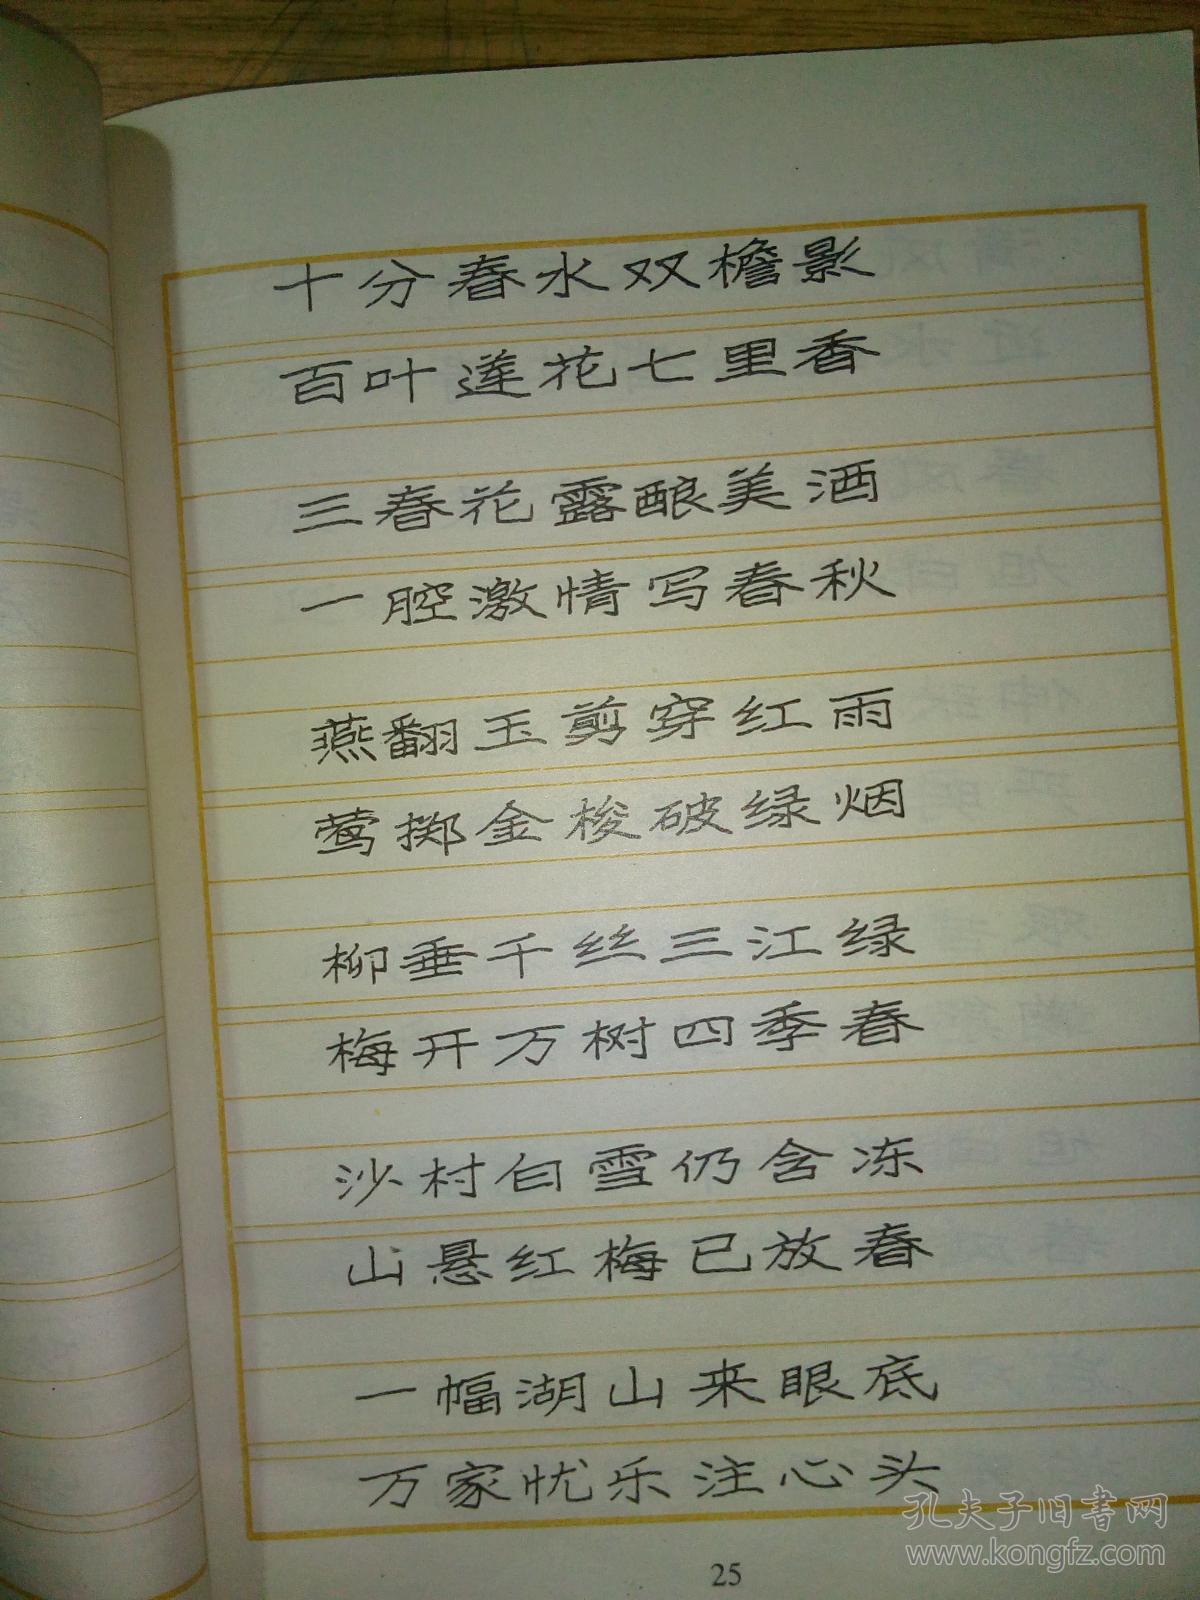 十分春水双檐影
百叶莲花七里香
三春花露酿美酒
一腔激情写春秋
燕翻玉剪穿红雨
莺掷金梭破绿烟
柳垂千丝三江绿
梅开万树四季春
沙村白雪仍含冻
山悬红梅已放春
一幅湖山来眼底
万家忧乐注心头
孔夫子旧书网
www.kongfz.com
25